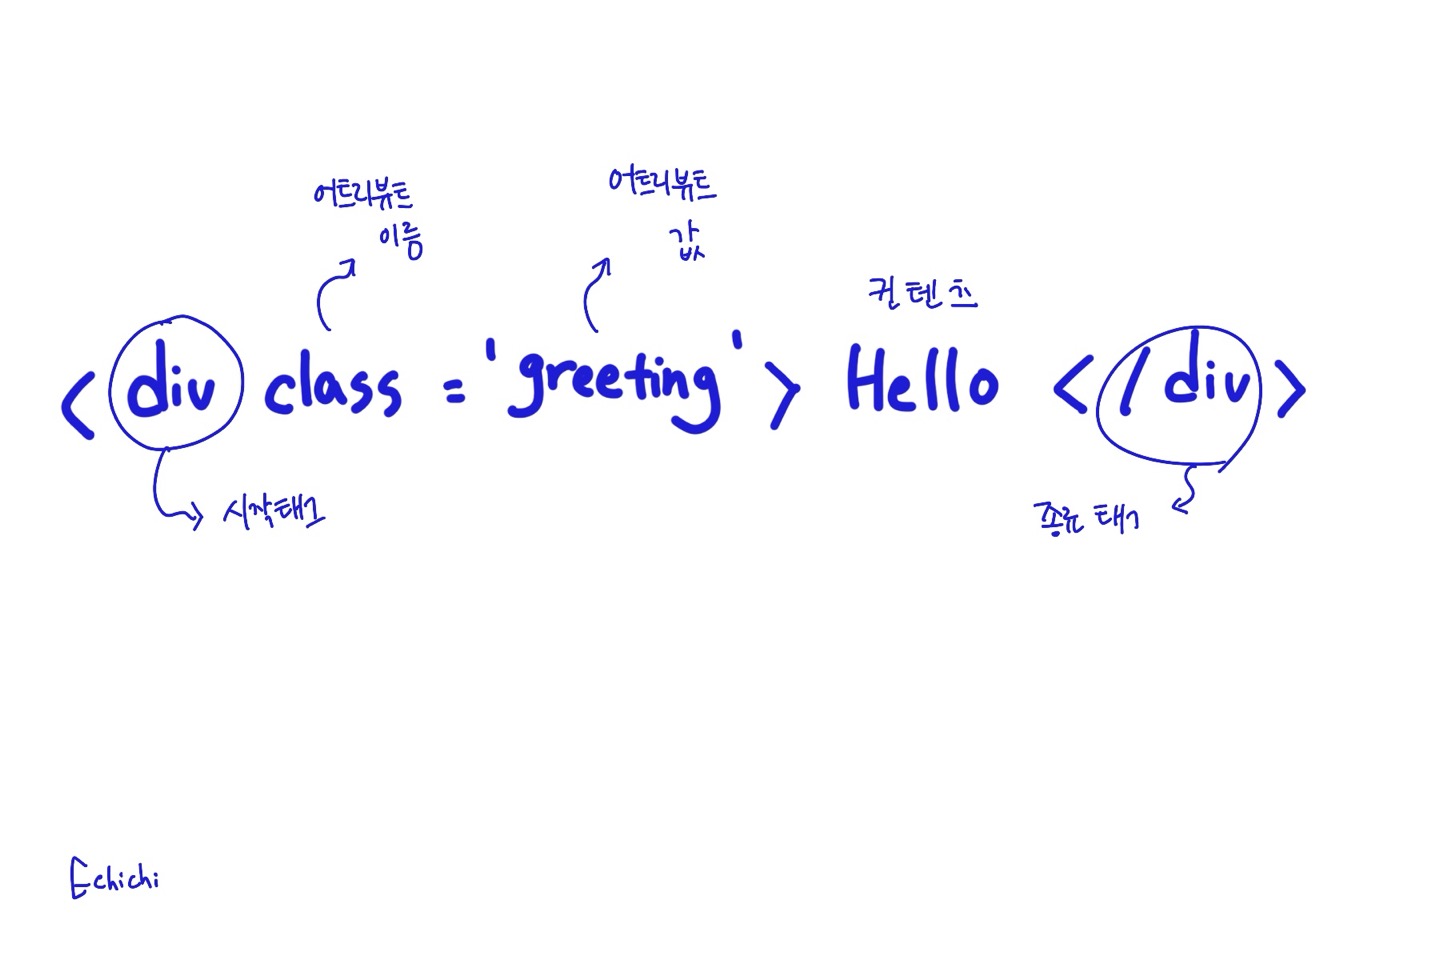 어트리뷰트
이름
어트리뷰트
값
컨텐츠
<div class = 'greeting'> Hello </div>
시작태그
종류 태그
Echichi